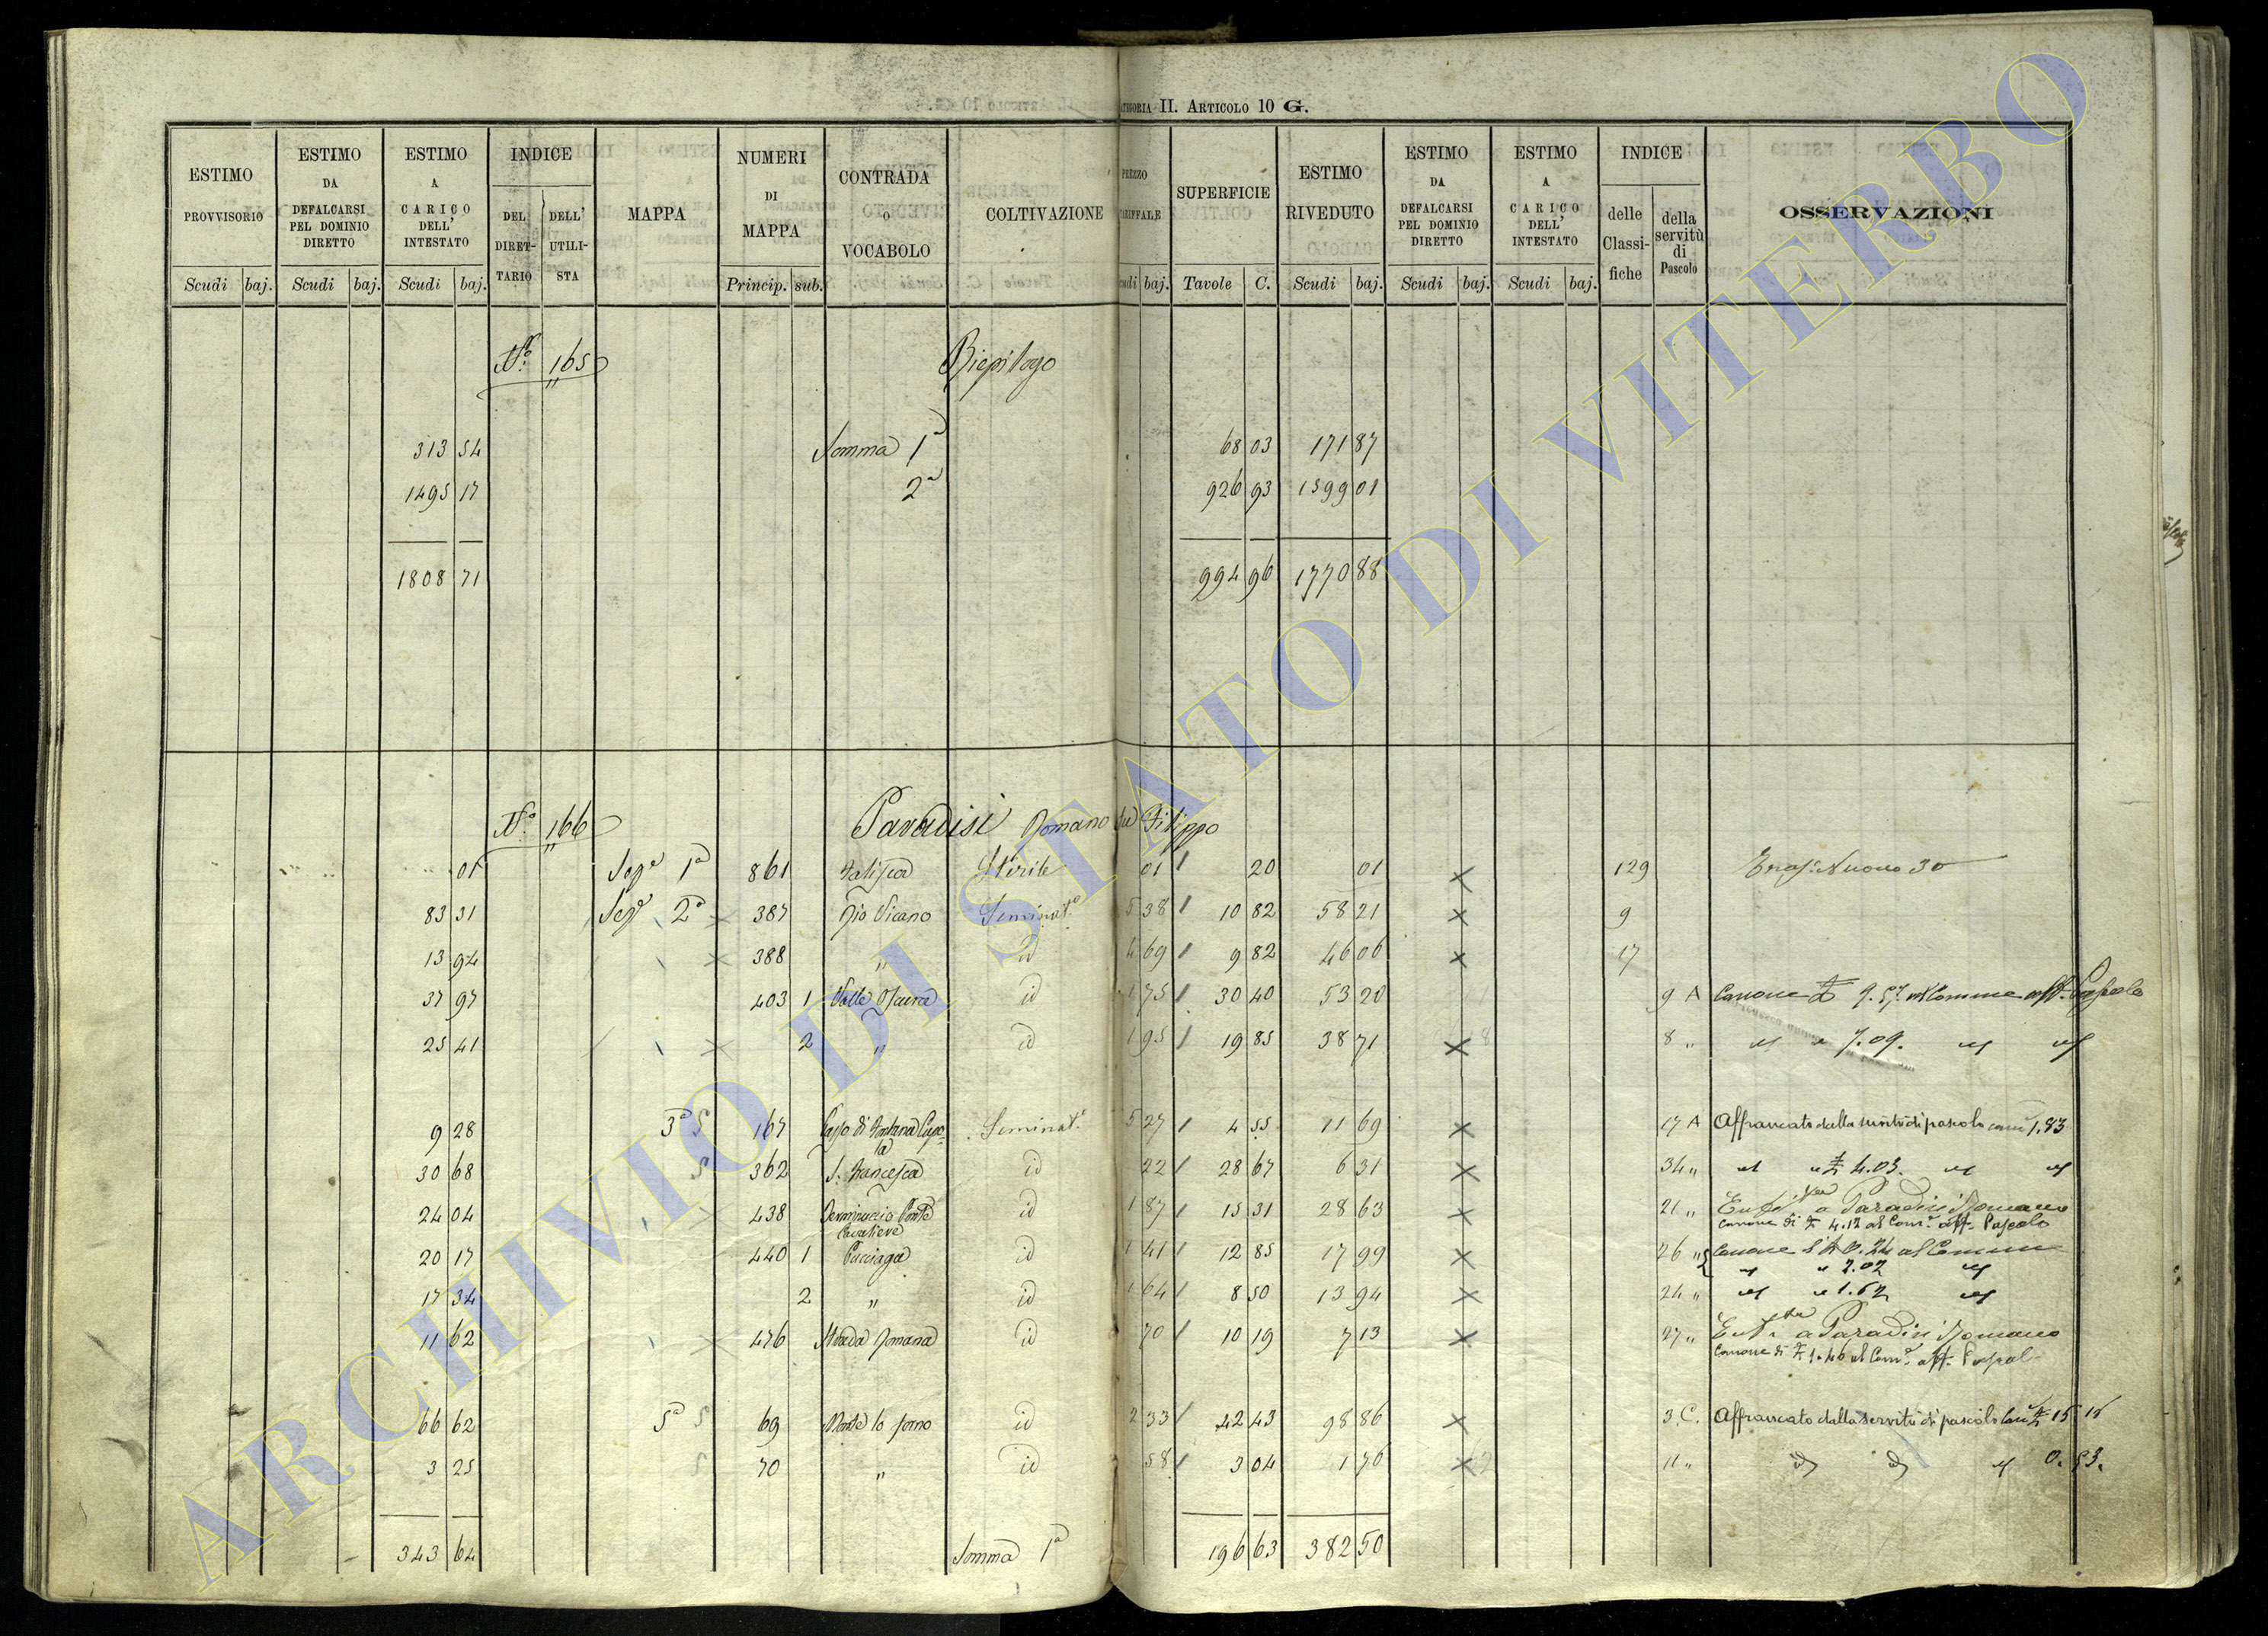 CATEGORIA II. ARTICOLO 10 G.
ESTIMO PROVVISORIO Scudi baj. ESTIMO DA DEFALCARSI PEL DOMINIO DIRETTO Scudi baj. ESTIMO A CARICO DELL' INTESTATO Scudi baj. INDICE DEL DIRETTARIO DELL' UTILISTA MAPPA NUMERI DI MAPPA Princip. sub. CONTRADA O VOCABOLO COLTIVAZIONE PREZZO TARIFFALE Scudi baj. SUPERFICIE Tavole C. ESTIMO RIVEDUTO Scudi baj. ESTIMO DA DEFALCARSI PEL DOMINIO DIRETTO Scudi baj. ESTIMO A CARICO DELL' INTESTATO Scudi baj. INDICE delle Classifiche della servitù di Pascolo OSSERVAZIONI
N.° 165 Riepilogo
313 54 Somma 1ª 68 03 171 87
1495 17 2ª 926 93 1599 01
1808 71 994 96 1770 88
N.° 166 Paradisi Romano fu Filippo
01 Sezª 1ª 861 Stirile 01 20 01 129
83 31 Sezª 2ª 387 Rio Vicano Seminat.° 5 38 10 82 58 21 9
13 94 388 " id 4 69 9 82 46 06 17
37 97 403 1 Valle Oscura id 1 75 30 40 53 20 9 A Canone al Comune aff. Pascolo
25 41 2 " id 1 95 19 85 38 71 8 " 7.09.
9 28 3ª 167 Seminat.° 27 4 55 11 69 17 A Affrancato dalla servitù di pascolo 1.83
30 68 362 S. Francesca id 22 28 67 6 31 34 " 4.03.
24 04 438 Cavaliere id 1 87 15 31 28 63 21 " Paradisi Romano
canone di 4.12 al Com.e aff. Pascolo
20 17 440 1 id 1 41 12 85 17 99 26 " Canone al Comune
17 34 2 " id 1 64 8 50 13 94 24 " 1.62
11 62 476 Strada Romana id 70 10 19 7 13 27 " a Paradisi Romano
Canone di 1.46 al Com.e aff. Pascol.
66 62 5ª 69 Monte lo porno id 2 33 42 43 98 86 3 C. Affrancato dalla servitù di pascolo 15 15
3 25 70 " id 58 3 04 1 76 11 " 0.53.
343 64 Somma 1ª 196 63 382 50
ARCHIVIO DI STATO DI VITERBO